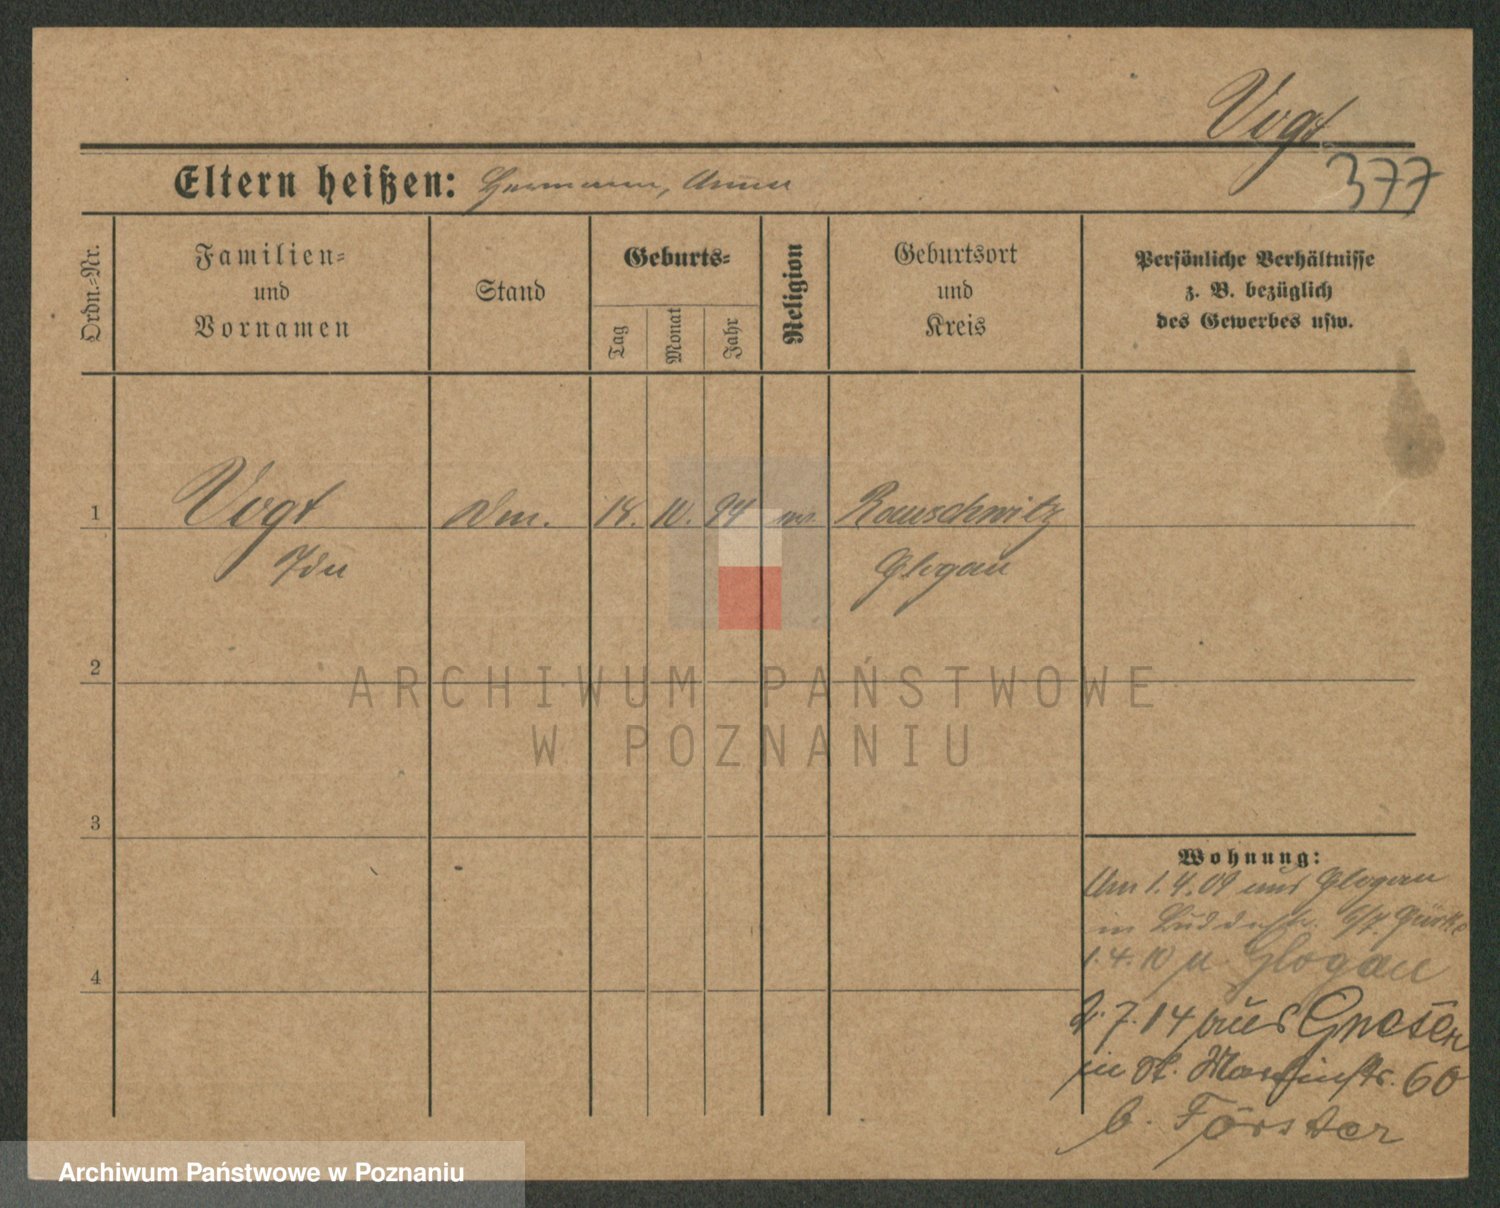 Vogt
377
Eltern heißen: Hermann, Anna
Ordn.-Nr.
Familien-
und
Vornamen
Stand
Geburts-
Tag
Monat
Jahr
Religion
Geburtsort
und
Kreis
Persönliche Verhältnisse
z. B. bezüglich
des Gewerbes usw.
1
Vogt
18. 10. 94
Rauschwitz
Ida
Glogau
2
ARCHIWUM PAŃSTWOWE
W POZNANIU
3
4
Wohnung:
Am 1.4.09 aus Glogau
in
1.4.10 n. Glogau
7.14 aus Gnesen
in St. Martinstr. 60
b. Förster
Archiwum Państwowe w Poznaniu